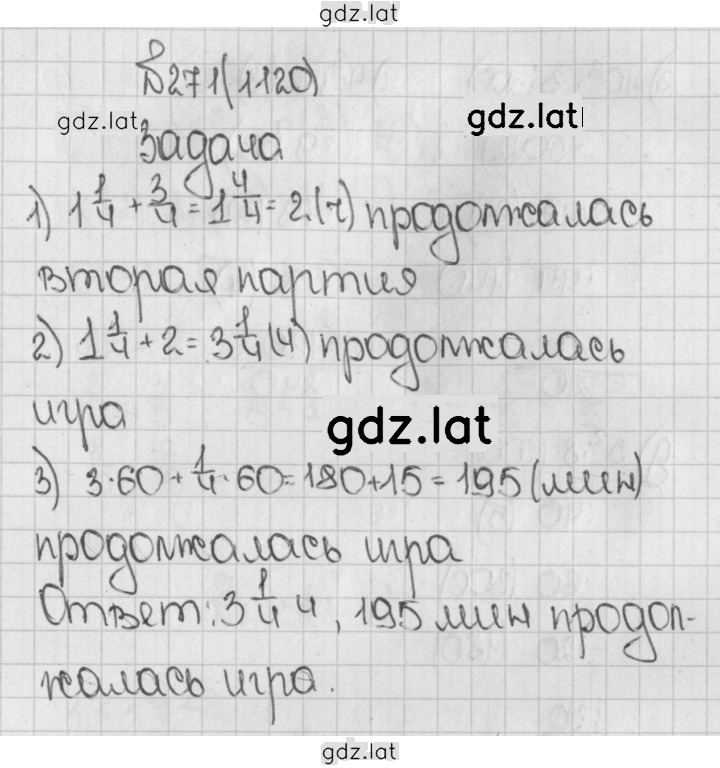 gdz.lat
№271(1120)
gdz.lat gdz.lat
Задача
1) 1 1/4 + 3/4 = 1 4/4 = 2 (ч) продолжалась
вторая партия
2) 1 1/4 + 2 = 3 1/4 (ч) продолжалась
игра gdz.lat
3) 3·60 + 1/4·60 = 180+15 = 195 (мин)
продолжалась игра
Ответ: 3 1/4 ч, 195 мин продол-
жалась игра.
gdz.lat